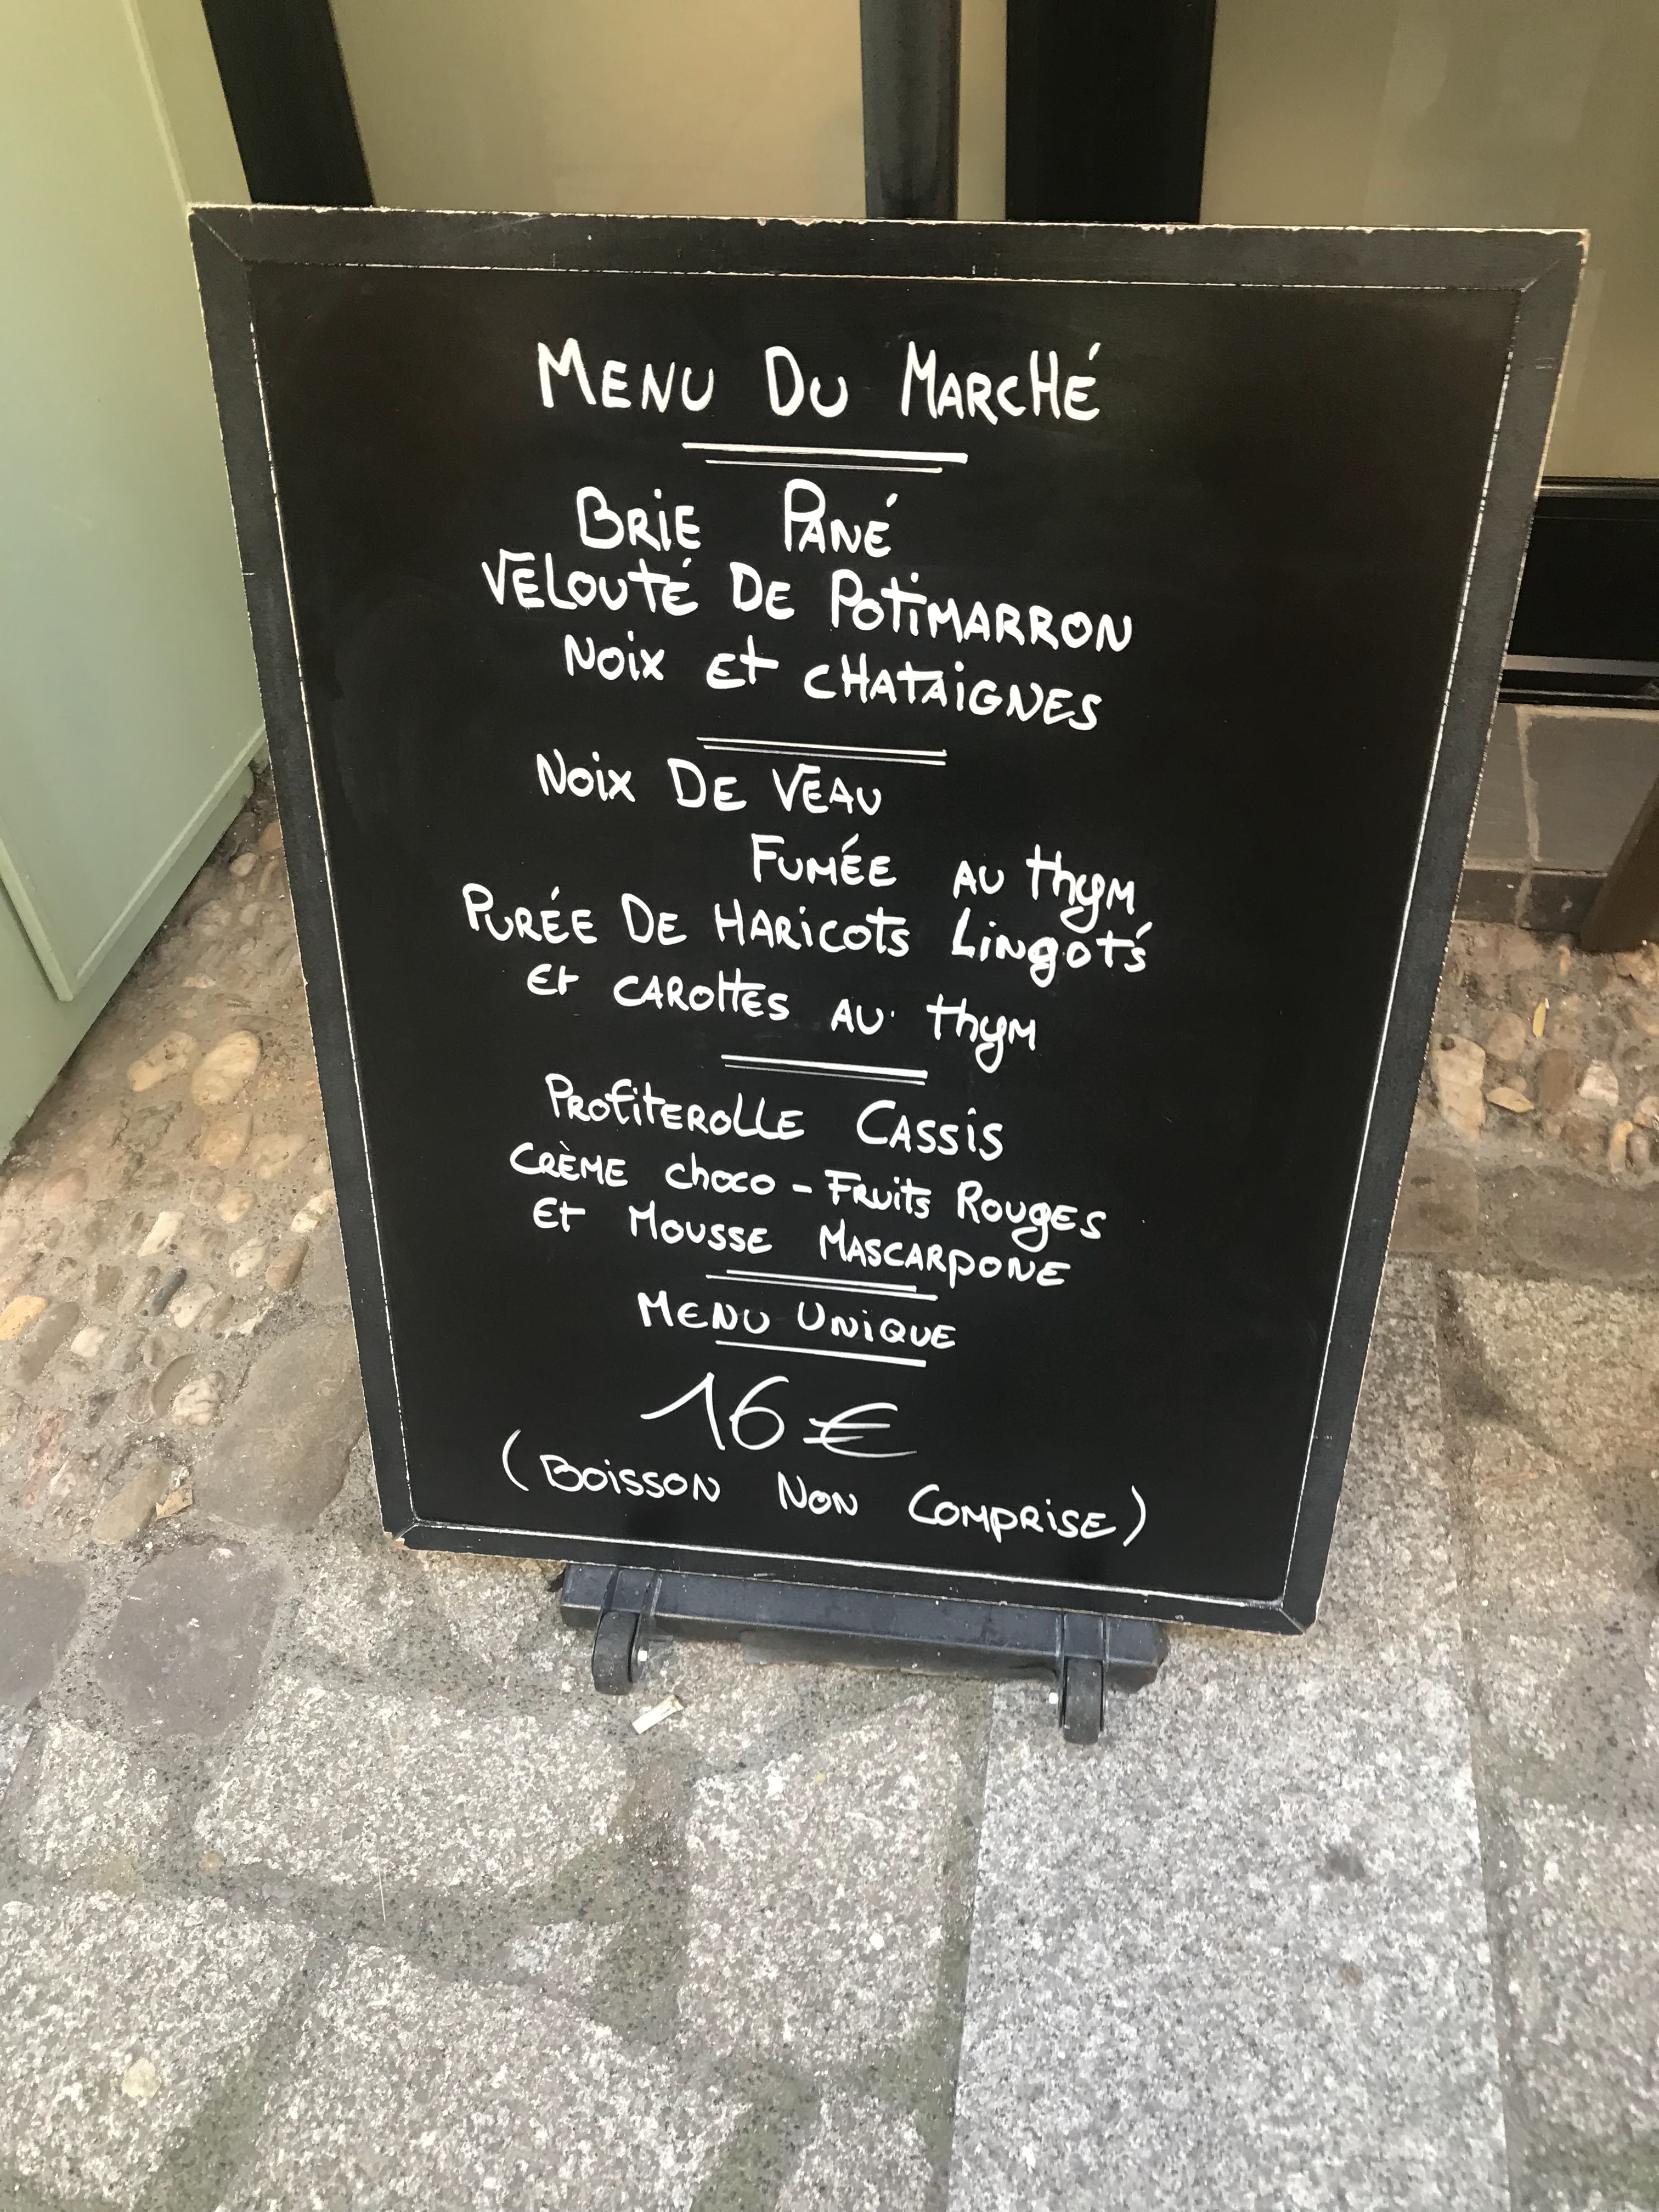 MENU DU MARCHÉ
BRIE PANÉ
VELOUTÉ DE POTIMARRON
NOIX ET CHATAIGNES
NOIX DE VEAU
FUMÉE AU THYM
PURÉE DE HARICOTS LINGOTS
ET CAROTTES AU THYM
PROFITEROLLE CASSIS
CRÈME CHOCO - FRUITS ROUGES
ET MOUSSE MASCARPONE
MENU UNIQUE
16 €
(BOISSON NON COMPRISE)